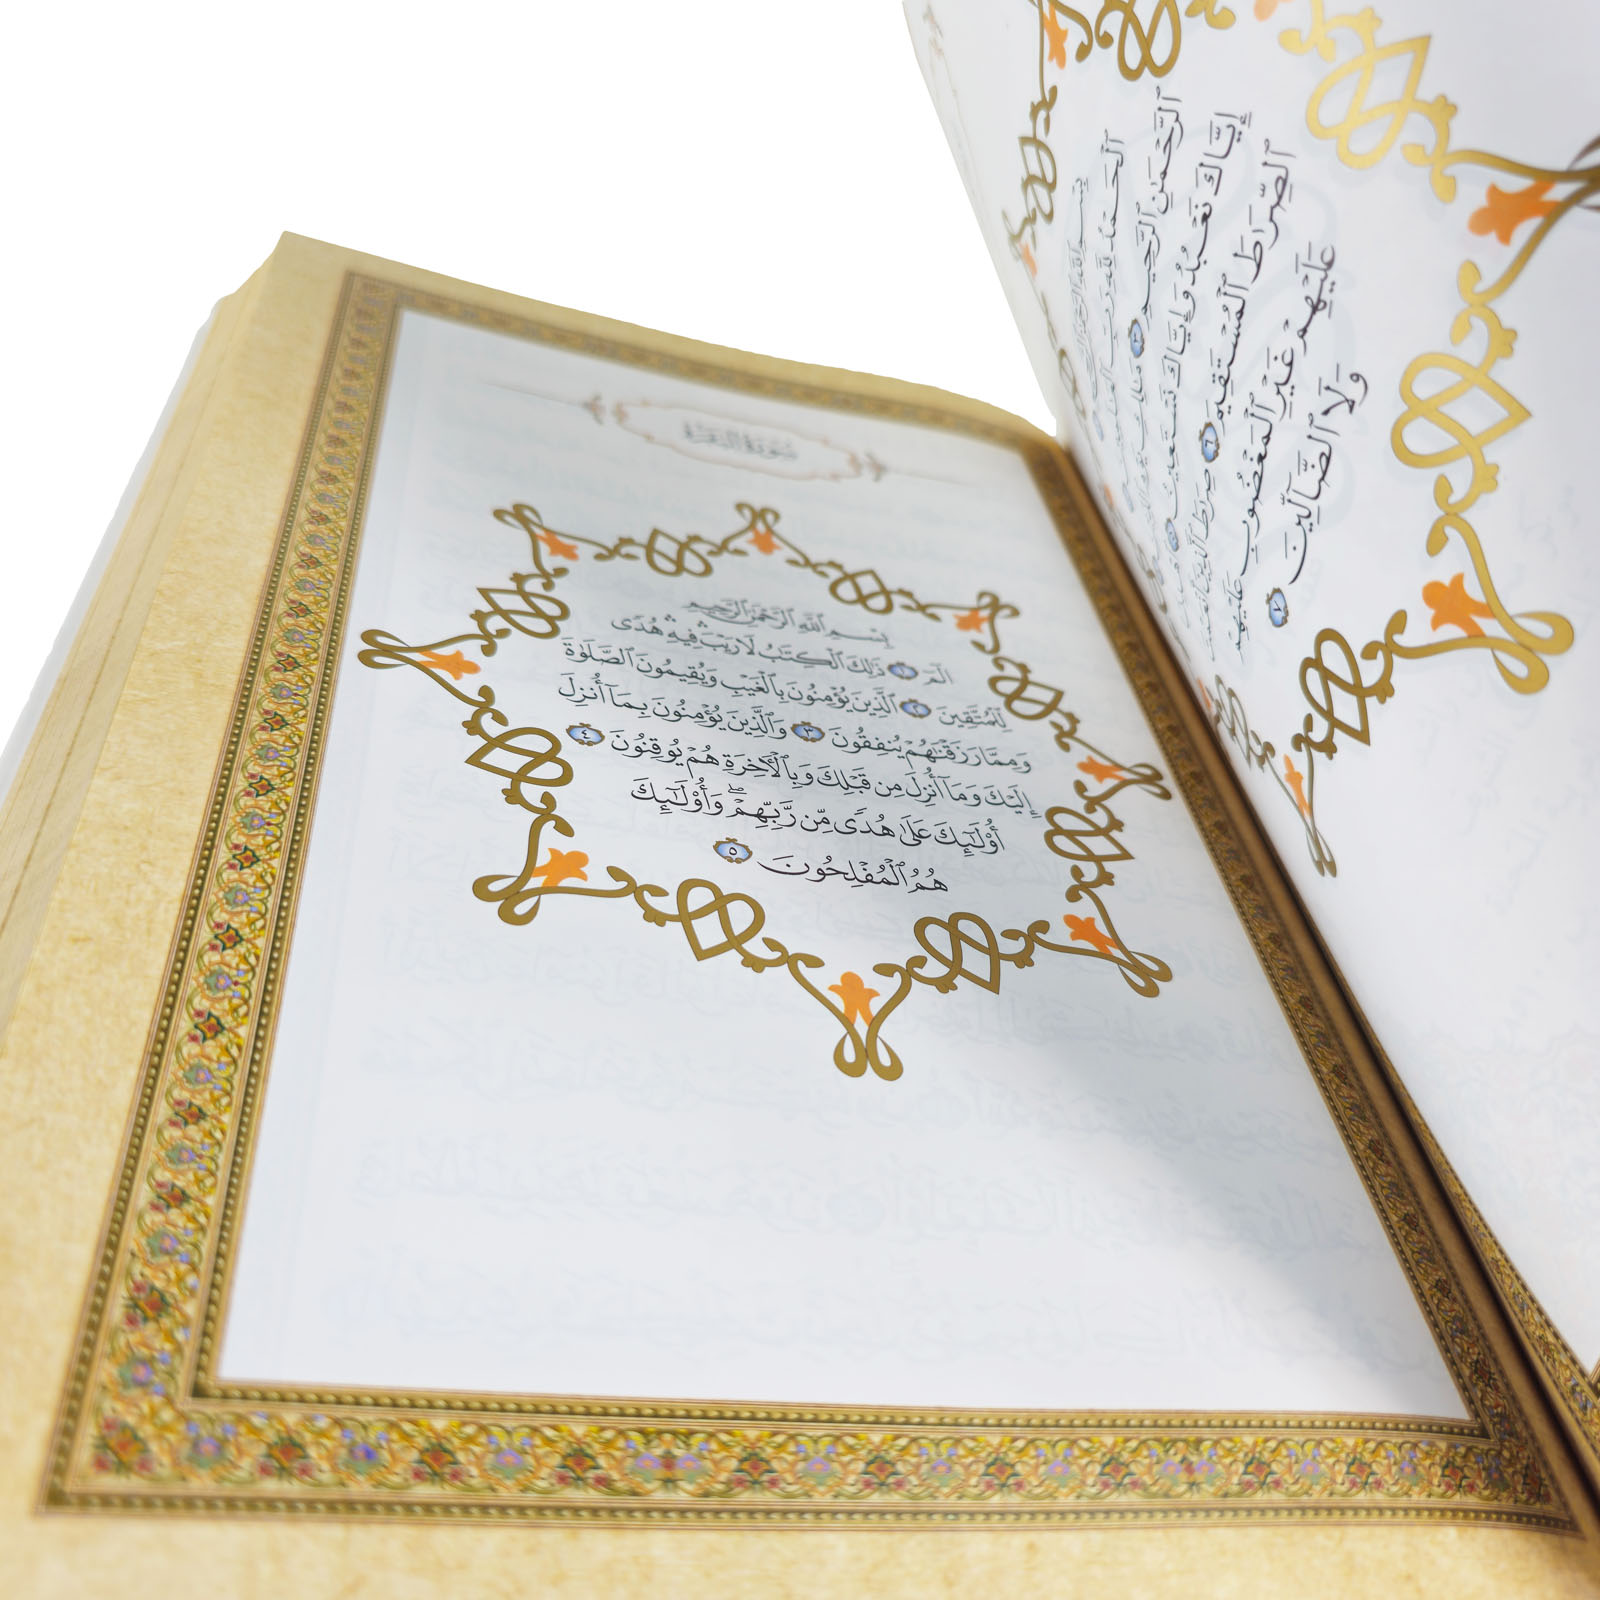 بِسْمِ ٱللَّهِ ٱلرَّحْمَٰنِ ٱلرَّحِيمِ
ٱلْحَمْدُ لِلَّهِ رَبِّ ٱلْعَٰلَمِينَ
ٱلرَّحْمَٰنِ ٱلرَّحِيمِ ٣ مَٰلِكِ يَوْمِ ٱلدِّينِ
إِيَّاكَ نَعْبُدُ وَإِيَّاكَ نَسْتَعِينُ ٥
ٱلصِّرَٰطَ ٱلْمُسْتَقِيمَ ٦ صِرَٰطَ ٱلَّذِينَ أَنْعَمْتَ عَلَيْهِمْ
عَلَيْهِمْ غَيْرِ ٱلْمَغْضُوبِ عَلَيْهِمْ
وَلَا ٱلضَّآلِّينَ ٧
سُورَةُ البَقَرَةِ
بِسْمِ ٱللَّهِ ٱلرَّحْمَٰنِ ٱلرَّحِيمِ
الٓمٓ ١ ذَٰلِكَ ٱلْكِتَٰبُ لَا رَيْبَ ۛ فِيهِ ۛ هُدًى
لِّلْمُتَّقِينَ ٢ ٱلَّذِينَ يُؤْمِنُونَ بِٱلْغَيْبِ وَيُقِيمُونَ ٱلصَّلَوٰةَ
وَمِمَّا رَزَقْنَٰهُمْ يُنفِقُونَ ٣ وَٱلَّذِينَ يُؤْمِنُونَ بِمَآ أُنزِلَ
إِلَيْكَ وَمَآ أُنزِلَ مِن قَبْلِكَ وَبِٱلْءَاخِرَةِ هُمْ يُوقِنُونَ ٤
أُو۟لَٰٓئِكَ عَلَىٰ هُدًى مِّن رَّبِّهِمْ ۖ وَأُو۟لَٰٓئِكَ
هُمُ ٱلْمُفْلِحُونَ ٥